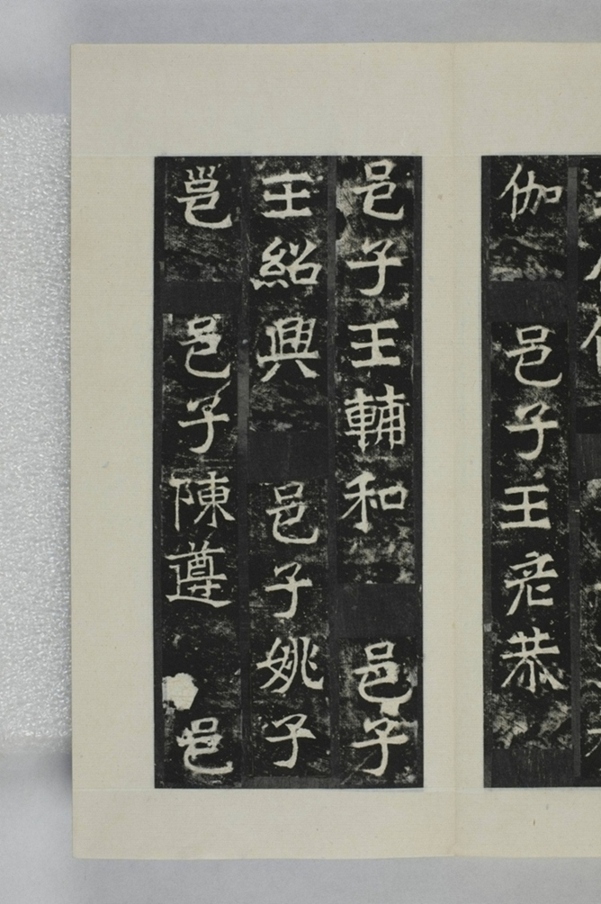 伽 邑子王老恭
邑子王輔和 邑子
王紹興 邑子姚子
邕 邑子陳遵 邑